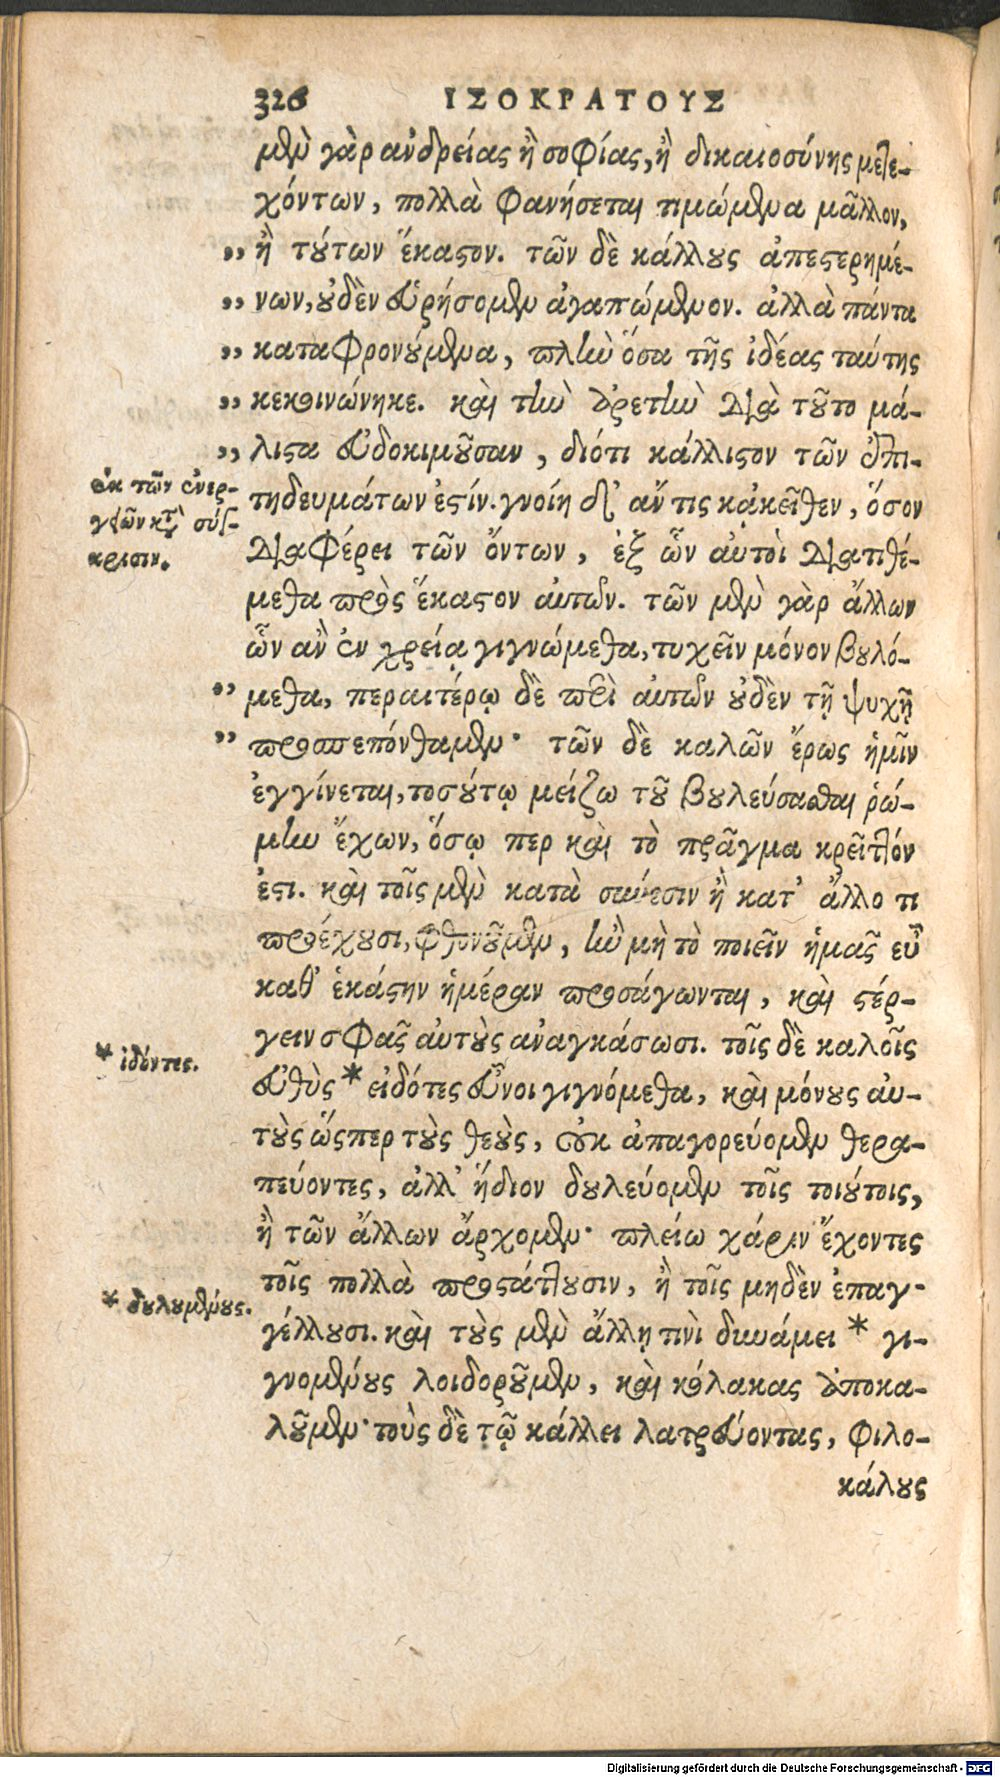 326 ΙΣΟΚΡΑΤΟΥΣ
μὲν γὰρ ἀνδρείας ἢ σοφίας, ἢ δικαιοσύνης μετε-
χόντων, πολλὰ φανήσεται τιμώμενα μᾶλλον,
,, ἢ τούτων ἕκαστον. τῶν δὲ κάλλους ἀπεστερημέ-
,, νων, οὐδὲν εὑρήσομεν ἀγαπώμενον. ἀλλὰ πάντα
,, καταφρονούμενα, πλὴν ὅσα τῆς ἰδέας ταύτης
,, κεκοινώνηκε. καὶ τὴν ἀρετὴν διὰ τοῦτο μά-
,, λιστα εὐδοκιμοῦσαν, διότι κάλλιστον τῶν ἐπι-
τηδευμάτων ἐστίν. γνοίη δ' ἄν τις κἀκεῖθεν, ὅσον
ἐκ τῶν ἐνερ-
γειῶν κτὰ σύγ-
κρισιν.
διαφέρει τῶν ὄντων, ἐξ ὧν αὐτοὶ διατιθέ-
μεθα πρὸς ἕκαστον αὐτῶν. τῶν μὲν γὰρ ἄλλων
ὧν ἂν ἐν χρείᾳ γιγνώμεθα, τυχεῖν μόνον βουλό-
,, μεθα, περαιτέρω δὲ περὶ αὐτῶν οὐδὲν τῇ ψυχῇ
,, προσπεπόνθαμεν· τῶν δὲ καλῶν ἔρως ἡμῖν
ἐγγίνεται, τοσούτῳ μείζω τοῦ βουλεύσασθαι ῥώ-
μην ἔχων, ὅσῳ περ καὶ τὸ πρᾶγμα κρεῖττόν
ἐστι. καὶ τοῖς μὲν κατὰ σύνεσιν ἢ κατ' ἄλλο τι
προέχουσι, φθονοῦμεν, ἢν μὴ τὸ ποιεῖν ἡμᾶς εὖ
καθ' ἑκάστην ἡμέραν προσάγωνται, καὶ στέρ-
γειν σφᾶς αὐτοὺς ἀναγκάσωσι. τοῖς δὲ καλοῖς
* ἰδόντες.
εὐθὺς * εἰδότες εὖνοι γιγνόμεθα, καὶ μόνους αὐ-
τοὺς ὥσπερ τοὺς θεοὺς, οὐκ ἀπαγορεύομεν θερα-
πεύοντες, ἀλλ' ἥδιον δουλεύομεν τοῖς τοιούτοις,
ἢ τῶν ἄλλων ἄρχομεν· πλείω χάριν ἔχοντες
τοῖς πολλὰ προστάττουσιν, ἢ τοῖς μηδὲν ἐπαγ-
* δουλουμένους.
γέλλουσι. καὶ τοὺς μὲν ἄλλῃ τινὶ δυνάμει * γι-
γνομένους λοιδοροῦμεν, καὶ κόλακας ἀποκα-
λοῦμεν· τοὺς δὲ τῷ κάλλει λατρεύοντας, φιλο-
κάλους
Digitalisierung gefördert durch die Deutsche Forschungsgemeinschaft - DFG